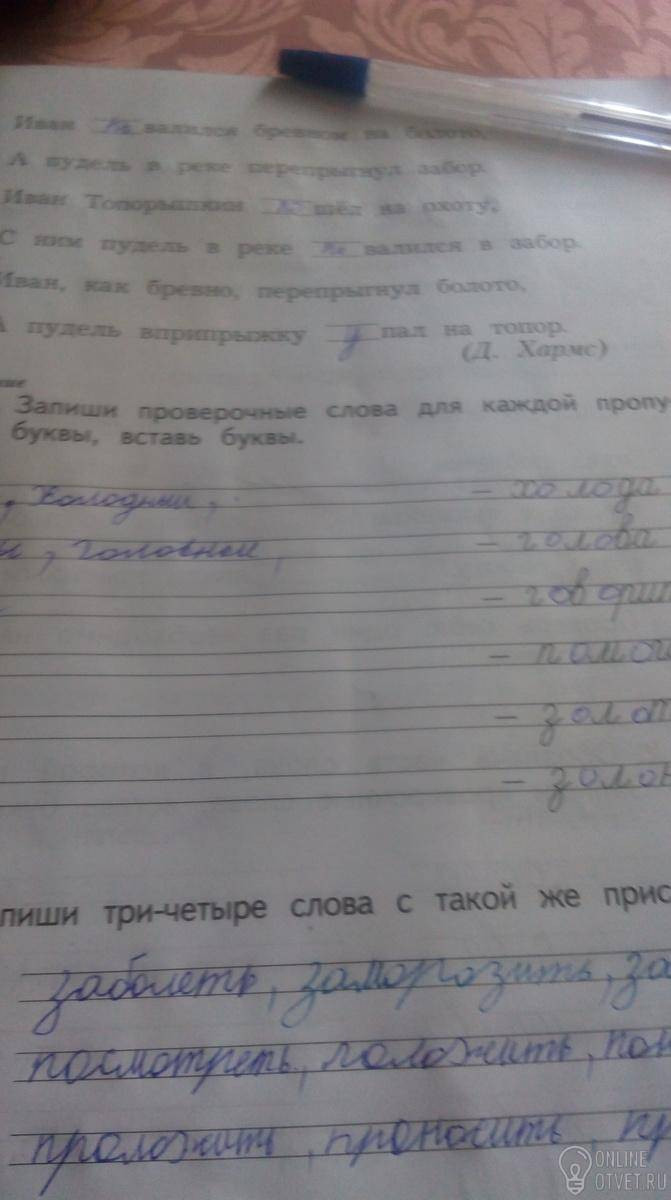 Иван повалился бревном на болото,
А пудель в реке перепрыгнул забор.
Иван Топорышкин пошёл на охоту,
С ним пудель в реке повалился в забор.
Иван, как бревно, перепрыгнул болото,
А пудель вприпрыжку упал на топор.
(Д. Хармс)
Запиши проверочные слова для каждой пропу-
буквы, вставь буквы.
, холодный, – холода
, головной, – голова
– говори
– помо
– золот
– золо
пиши три-четыре слова с такой же прис
заболеть, заморозить, за
посмотреть, положить, пом
проложить, проносить, пр
ONLINE
OTVET.RU